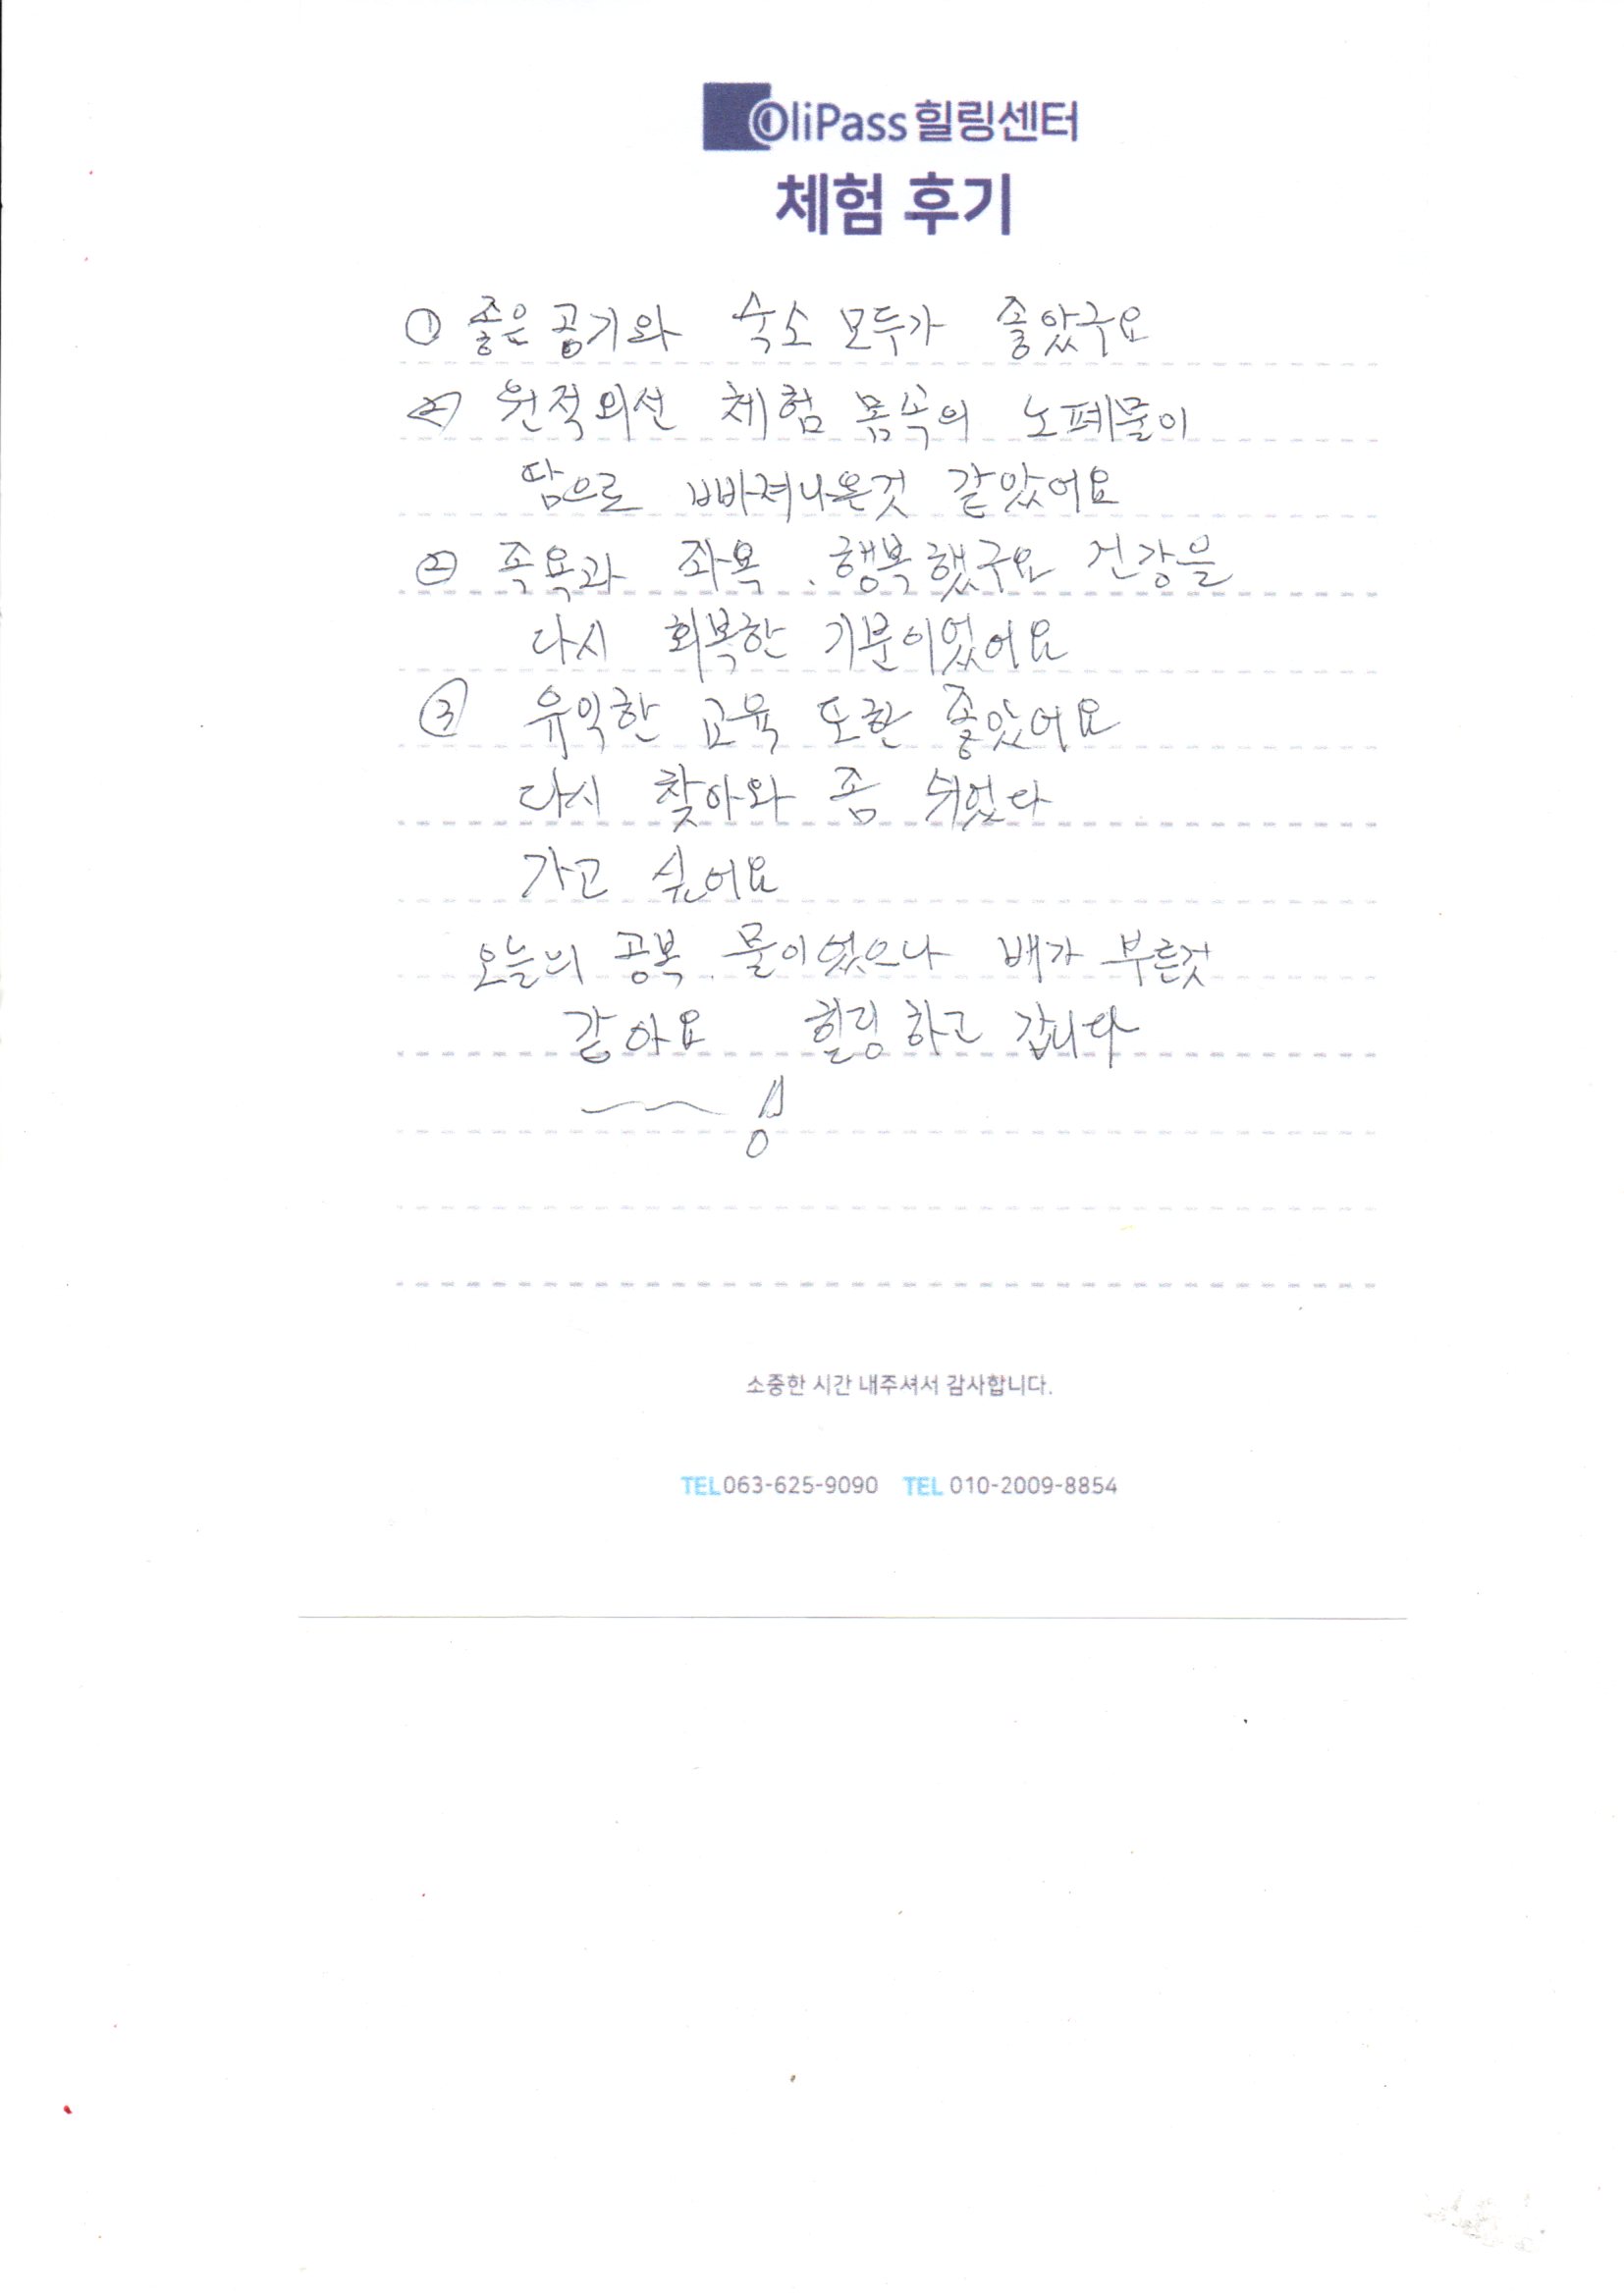 OliPass 힐링센터
체험 후기
① 좋은 공기와 숙소 모두가 좋았구요
② 원적외선 체험 몸속의 노폐물이
땀으로 빠져나온것 같았어요
② 족욕과 좌욕. 행복했구요 건강을
다시 회복한 기분이었어요
③ 유익한 교육 또한 좋았어요
다시 찾아와 좀 쉬었다
가고 싶어요
오늘의 공복. 물이었으나 배가 부른것
같아요 힐링하고 갑니다
~~!
소중한 시간 내주셔서 감사합니다.
TEL 063-625-9090 TEL 010-2009-8854